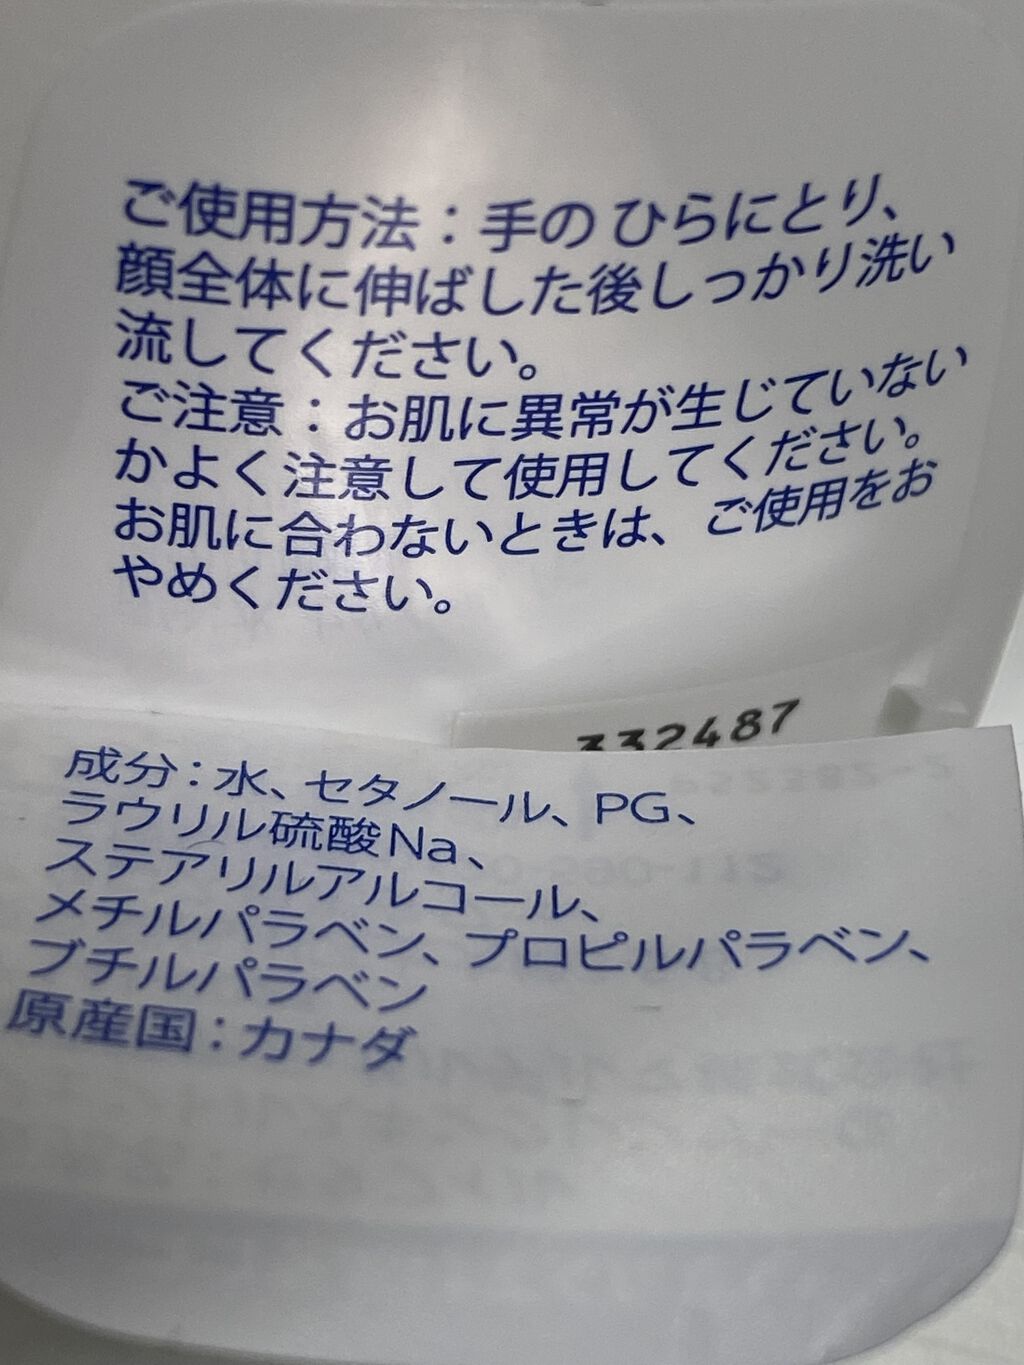 ご使用方法：手のひらにとり、
顔全体に伸ばした後しっかり洗い
流してください。
ご注意：お肌に異常が生じていない
かよく注意して使用してください。
お肌に合わないときは、ご使用をお
やめください。
332487
成分：水、セタノール、PG、
ラウリル硫酸Na、
ステアリルアルコール、
メチルパラベン、プロピルパラベン、
ブチルパラベン
原産国：カナダ